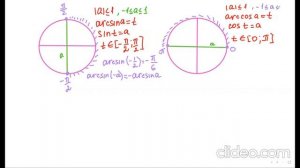 π/2
|a|≤1, -1≤a≤1
arcsina=t
sint=a
t∈[-π/2;π/2]
a
-π/2
arcsin(-1/2)=-π/6
arcsin(-a)=-arcsina
|a|≤1, -1≤a≤
arccosa=t
cost=a
t∈[0;π]
π
a
0
clideo.com